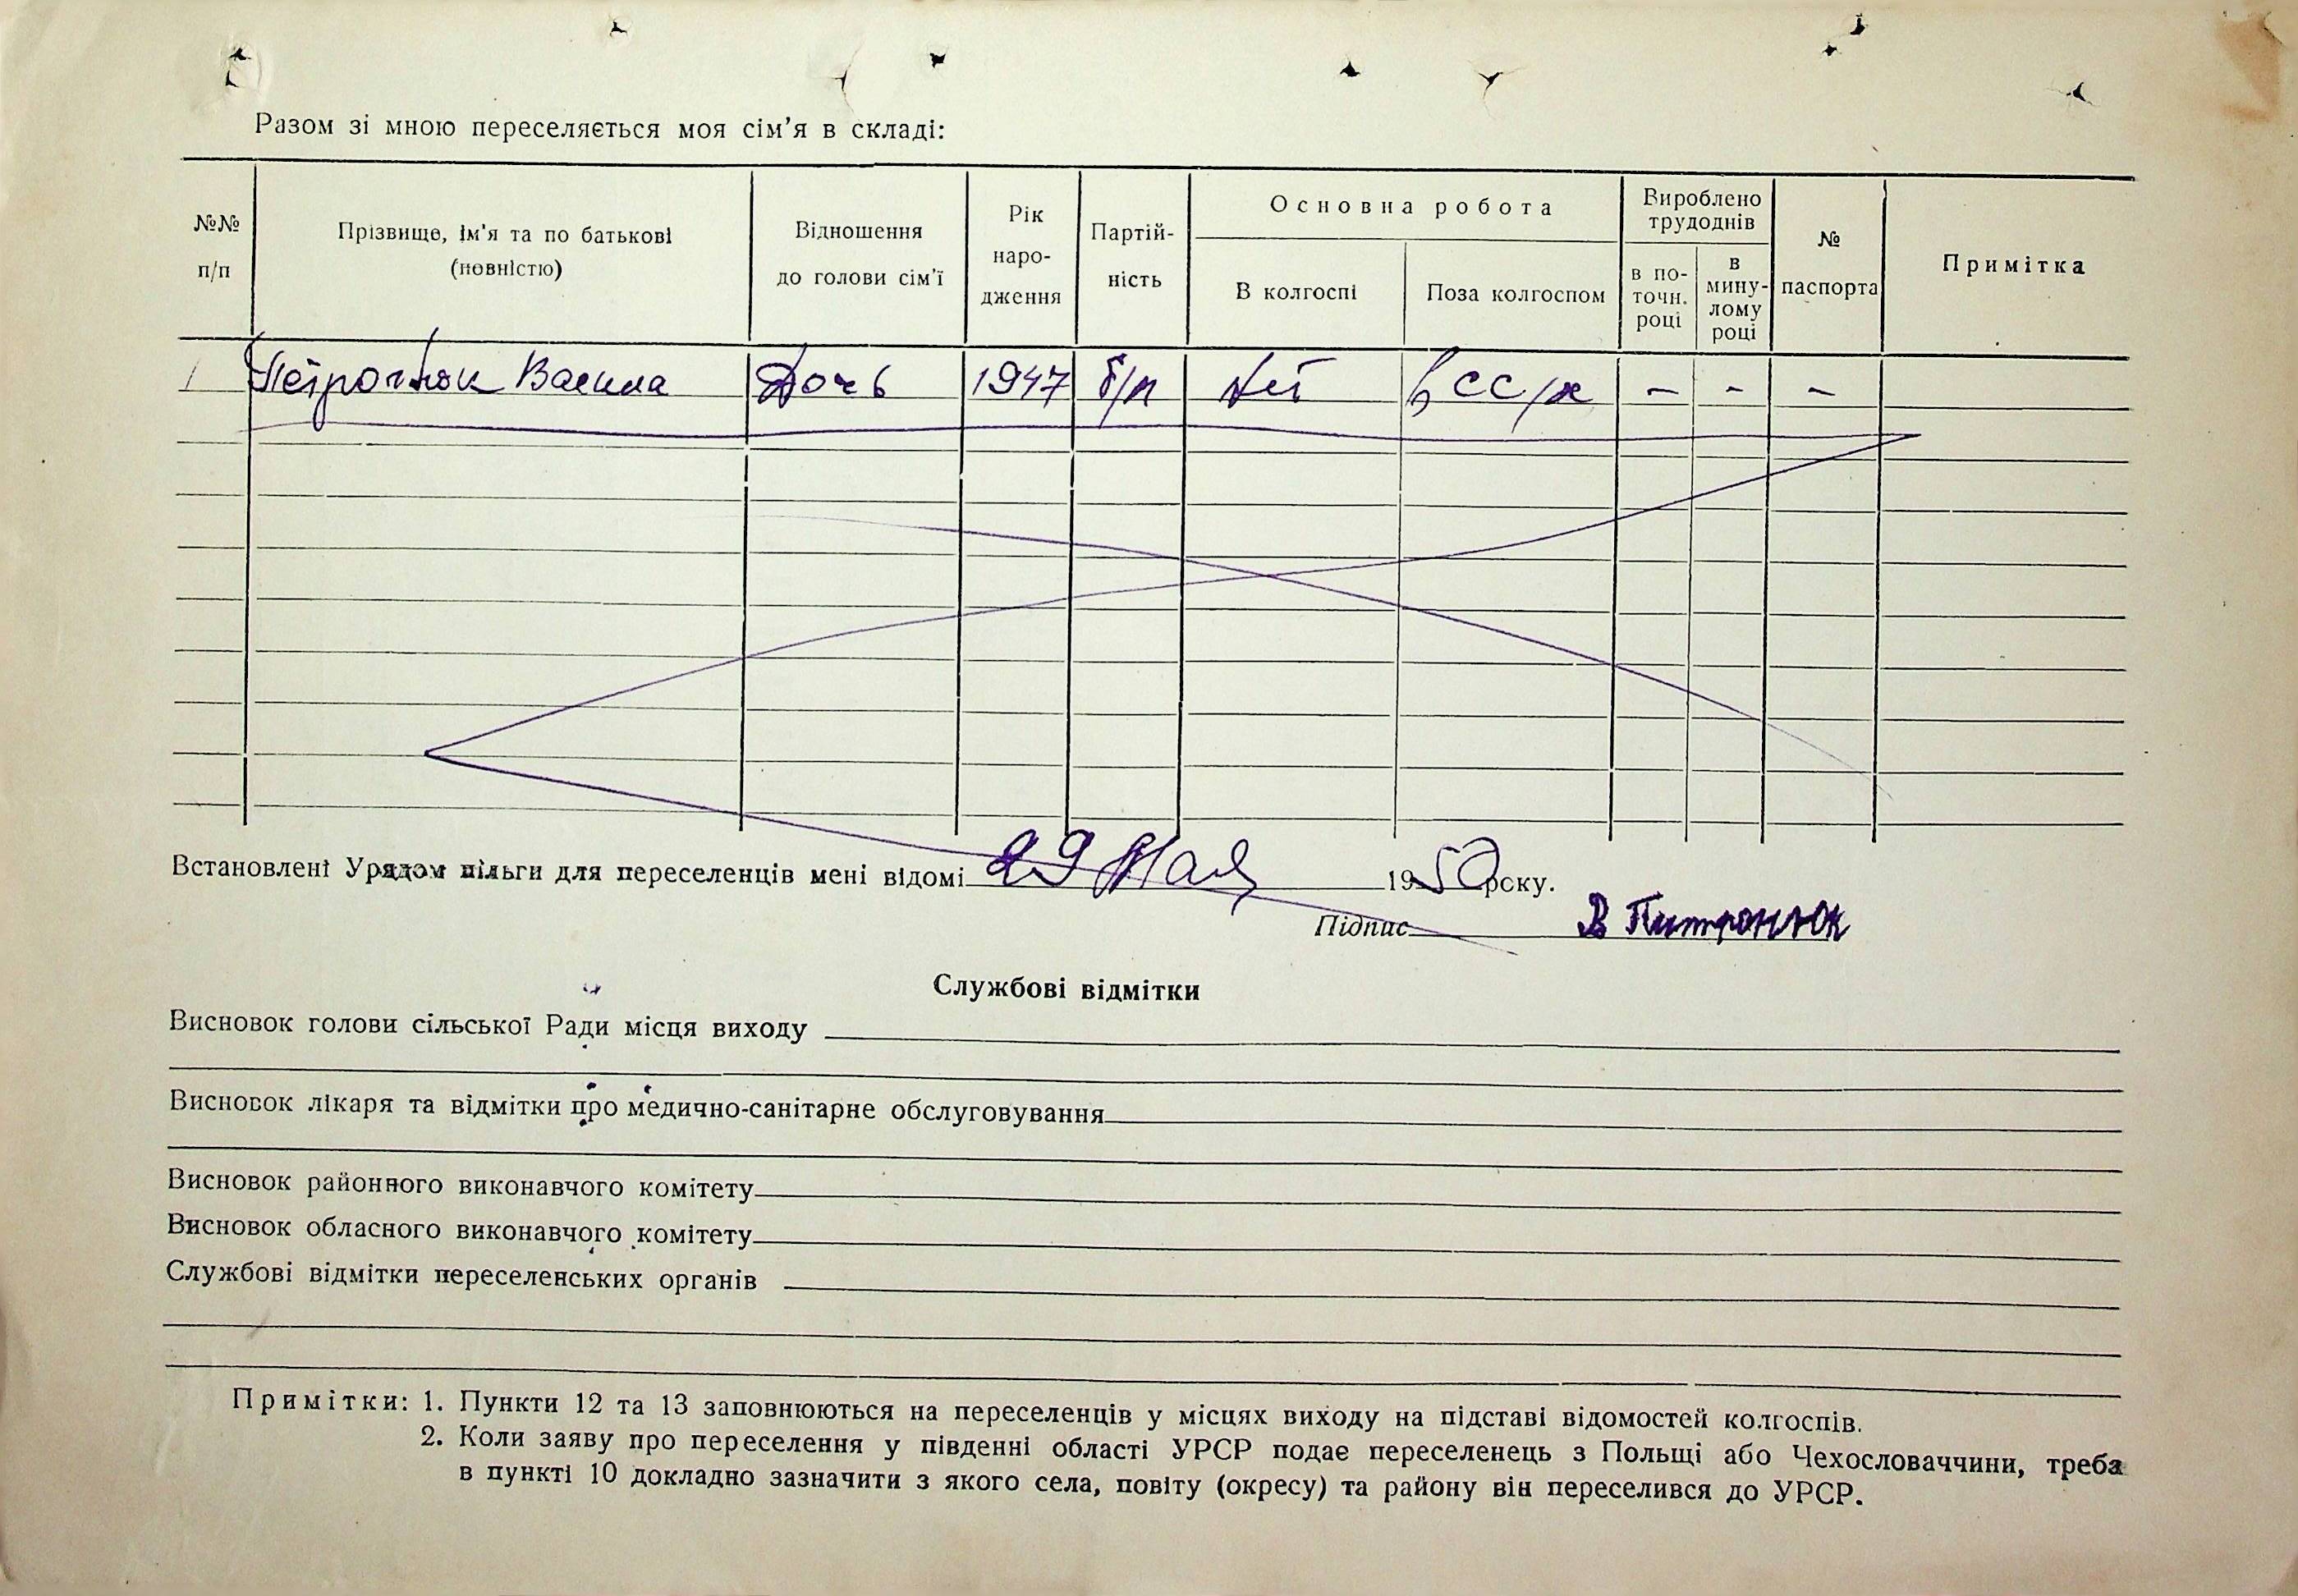 Разом зі мною переселяється моя сім'я в складі:
№№ п/п
Прізвище, ім'я та по батькові (повністю)
Відношення до голови сім'ї
Рік народження
Партійність
Основна робота
В колгоспі
Поза колгоспом
Вироблено трудоднів
в поточн. році
в минулому році
№ паспорта
Примітка
1 Петронюк Васила Дочь 1947 б/п Нет в СС/х – – –
Встановлені Урядом пільги для переселенців мені відомі 29 Мая 1950 року.
Підпис В Питронюк
Службові відмітки
Висновок голови сільської Ради місця виходу
Висновок лікаря та відмітки про медично-санітарне обслуговування
Висновок районного виконавчого комітету
Висновок обласного виконавчого комітету
Службові відмітки переселенських органів
Примітки: 1. Пункти 12 та 13 заповнюються на переселенців у місцях виходу на підставі відомостей колгоспів.
2. Коли заяву про переселення у південні області УРСР подає переселенець з Польщі або Чехословаччини, треба
в пункті 10 докладно зазначити з якого села, повіту (окресу) та району він переселився до УРСР.